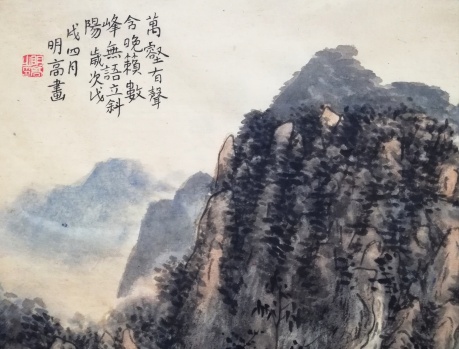 萬壑有聲
含晚籟數
峰無語立斜
陽 歲次戊
戌四月
明高畫